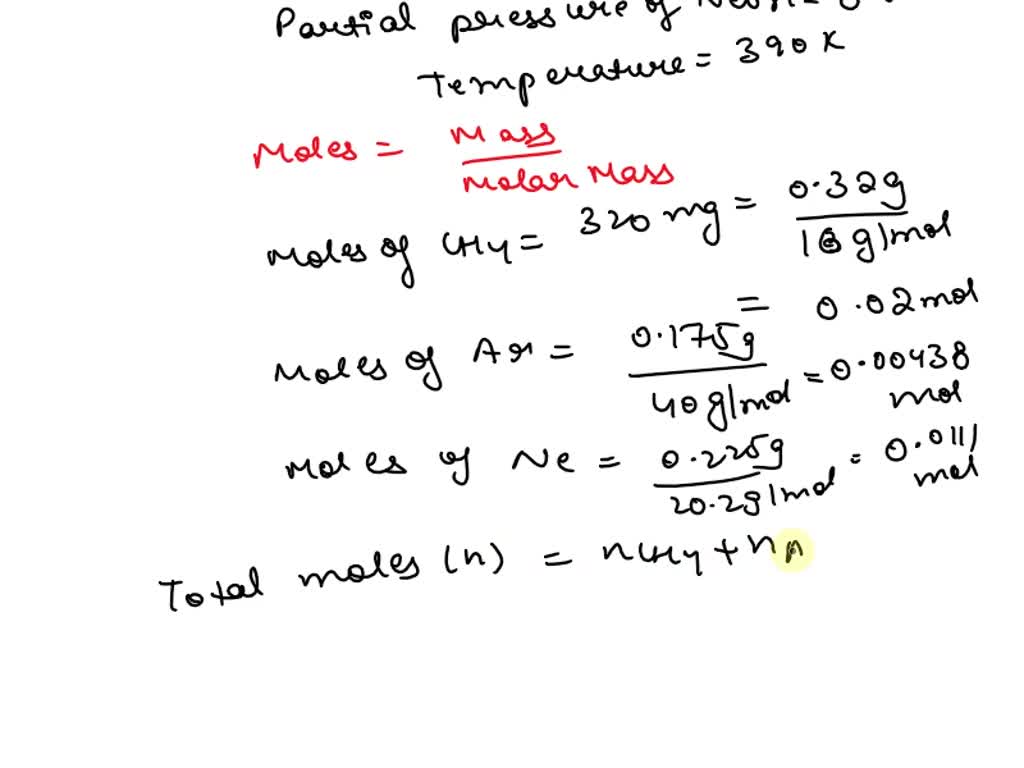 Partial pressure of Neon =
Temperature = 390 K
Moles = Mass / Molar Mass
Moles of CH4 = 320 mg = 0.32g / 16 g/mol
= 0.02 mol
Moles of Ar = 0.175g / 40 g/mol = 0.00438 mol
Moles of Ne = 0.225g / 20.2 g/mol = 0.0111 mol
Total moles (n) = nCH4 + nA